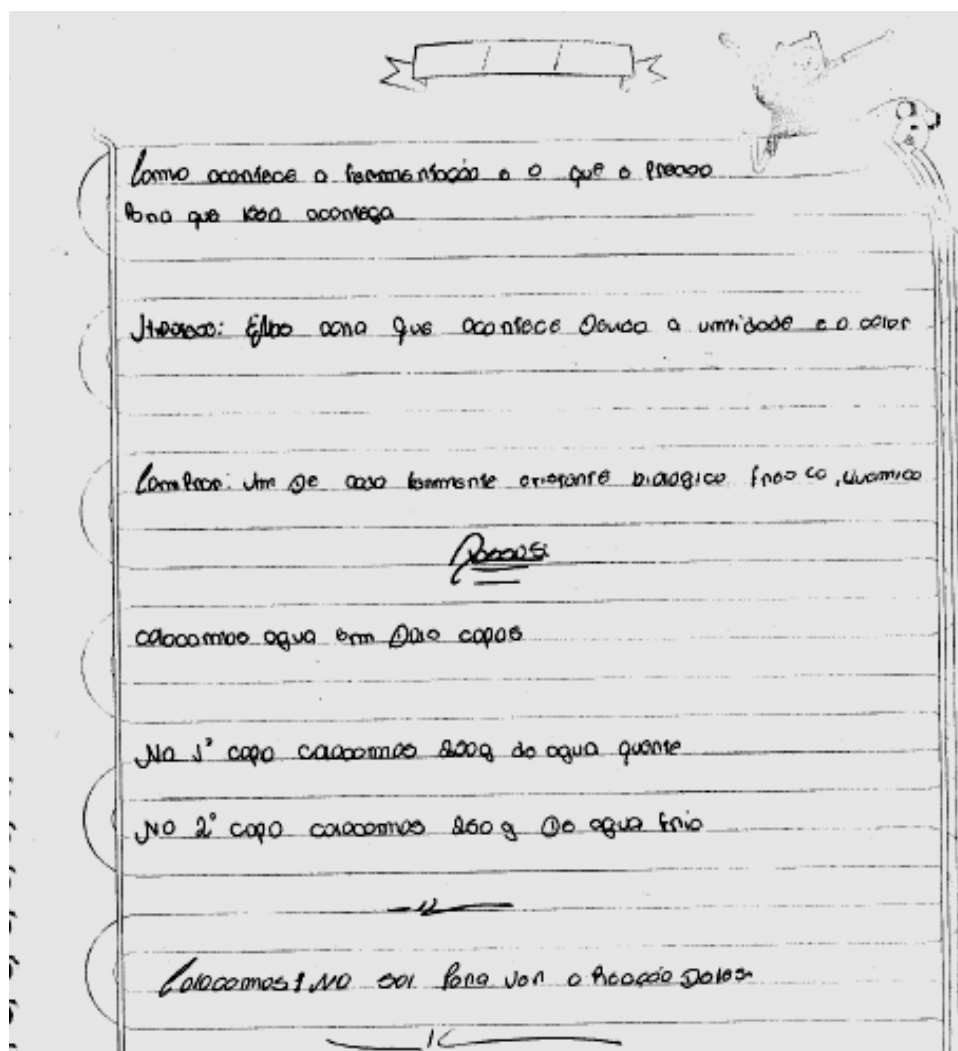 Como acontece a fermentação e o que e preciso
Para que isso aconteça
Ele acha que acontece Devido a umidade e o calor
Um De cada fermento biologico fresco, Quimico
colocamos agua em Dois copos
No 1° copo colocamos 200g de agua quente
No 2° copo colocamos 250g De agua fria
Colocamos! No sol Para ver a Reação Deles